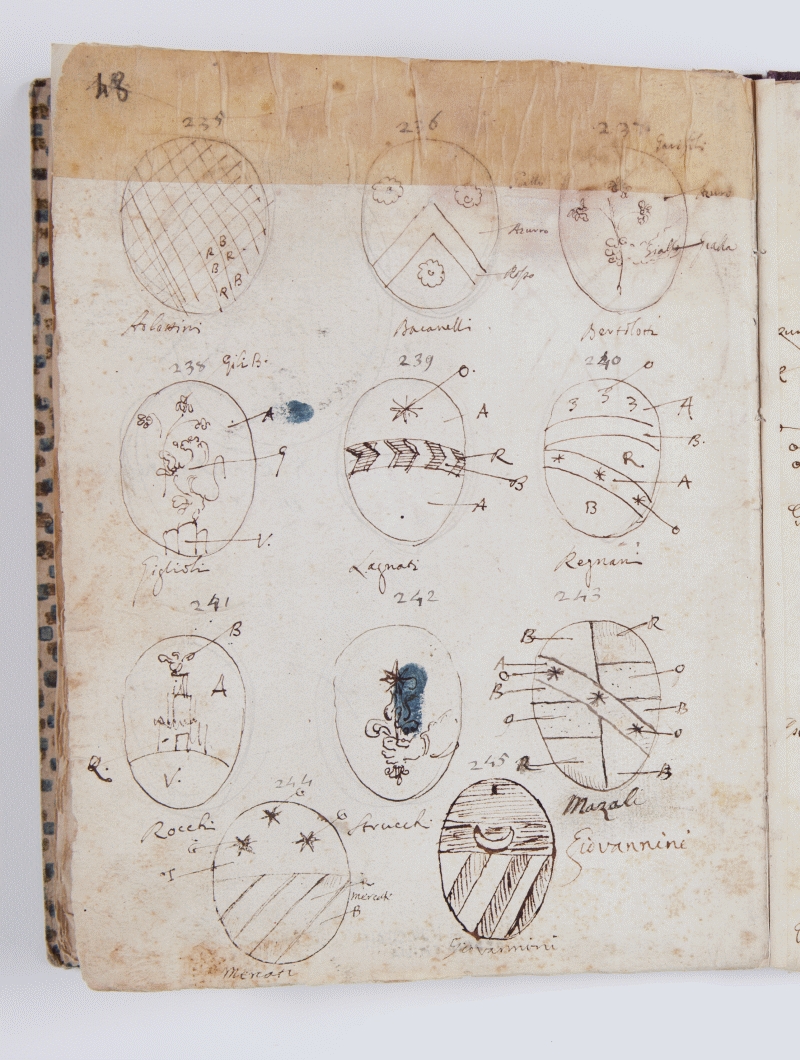 48
235
236
237
Azurro
Rosso
B
R R
B
B
R
Bacanelli
Bertolotti
238
239
240
O.
O
A
A
3 3 3
A
B.
G
R
B
R
A
A
B
V.
O
Giglioli
Lagnati
Regnani
241
242
243
B
A
V.
R.
B
R
A
O
B
O
O
B
O
R
B
Rocchi
Strucchi
Mazali
244
245
G
G
G
Giovannini
Mercati
B
Mercati
Giovannini